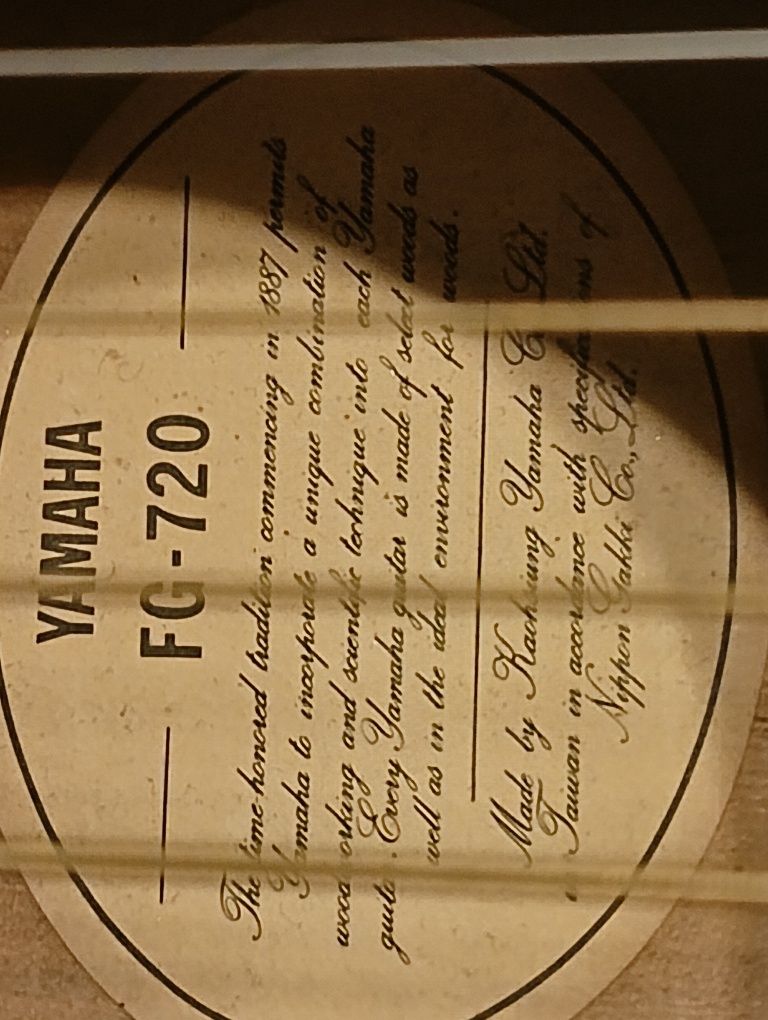 YAMAHA
FG-720
The time-honored tradition commencing in 1887 permits
Yamaha to incorporate a unique combination of
wood working and scientific technique into each Yamaha
guitar. Every Yamaha guitar is made of select woods as
well as in the ideal environment for woods.
Made by Kaohsiung Yamaha Co. Ltd.
in Taiwan in accordance with specifications of
Nippon Gakki Co., Ltd.